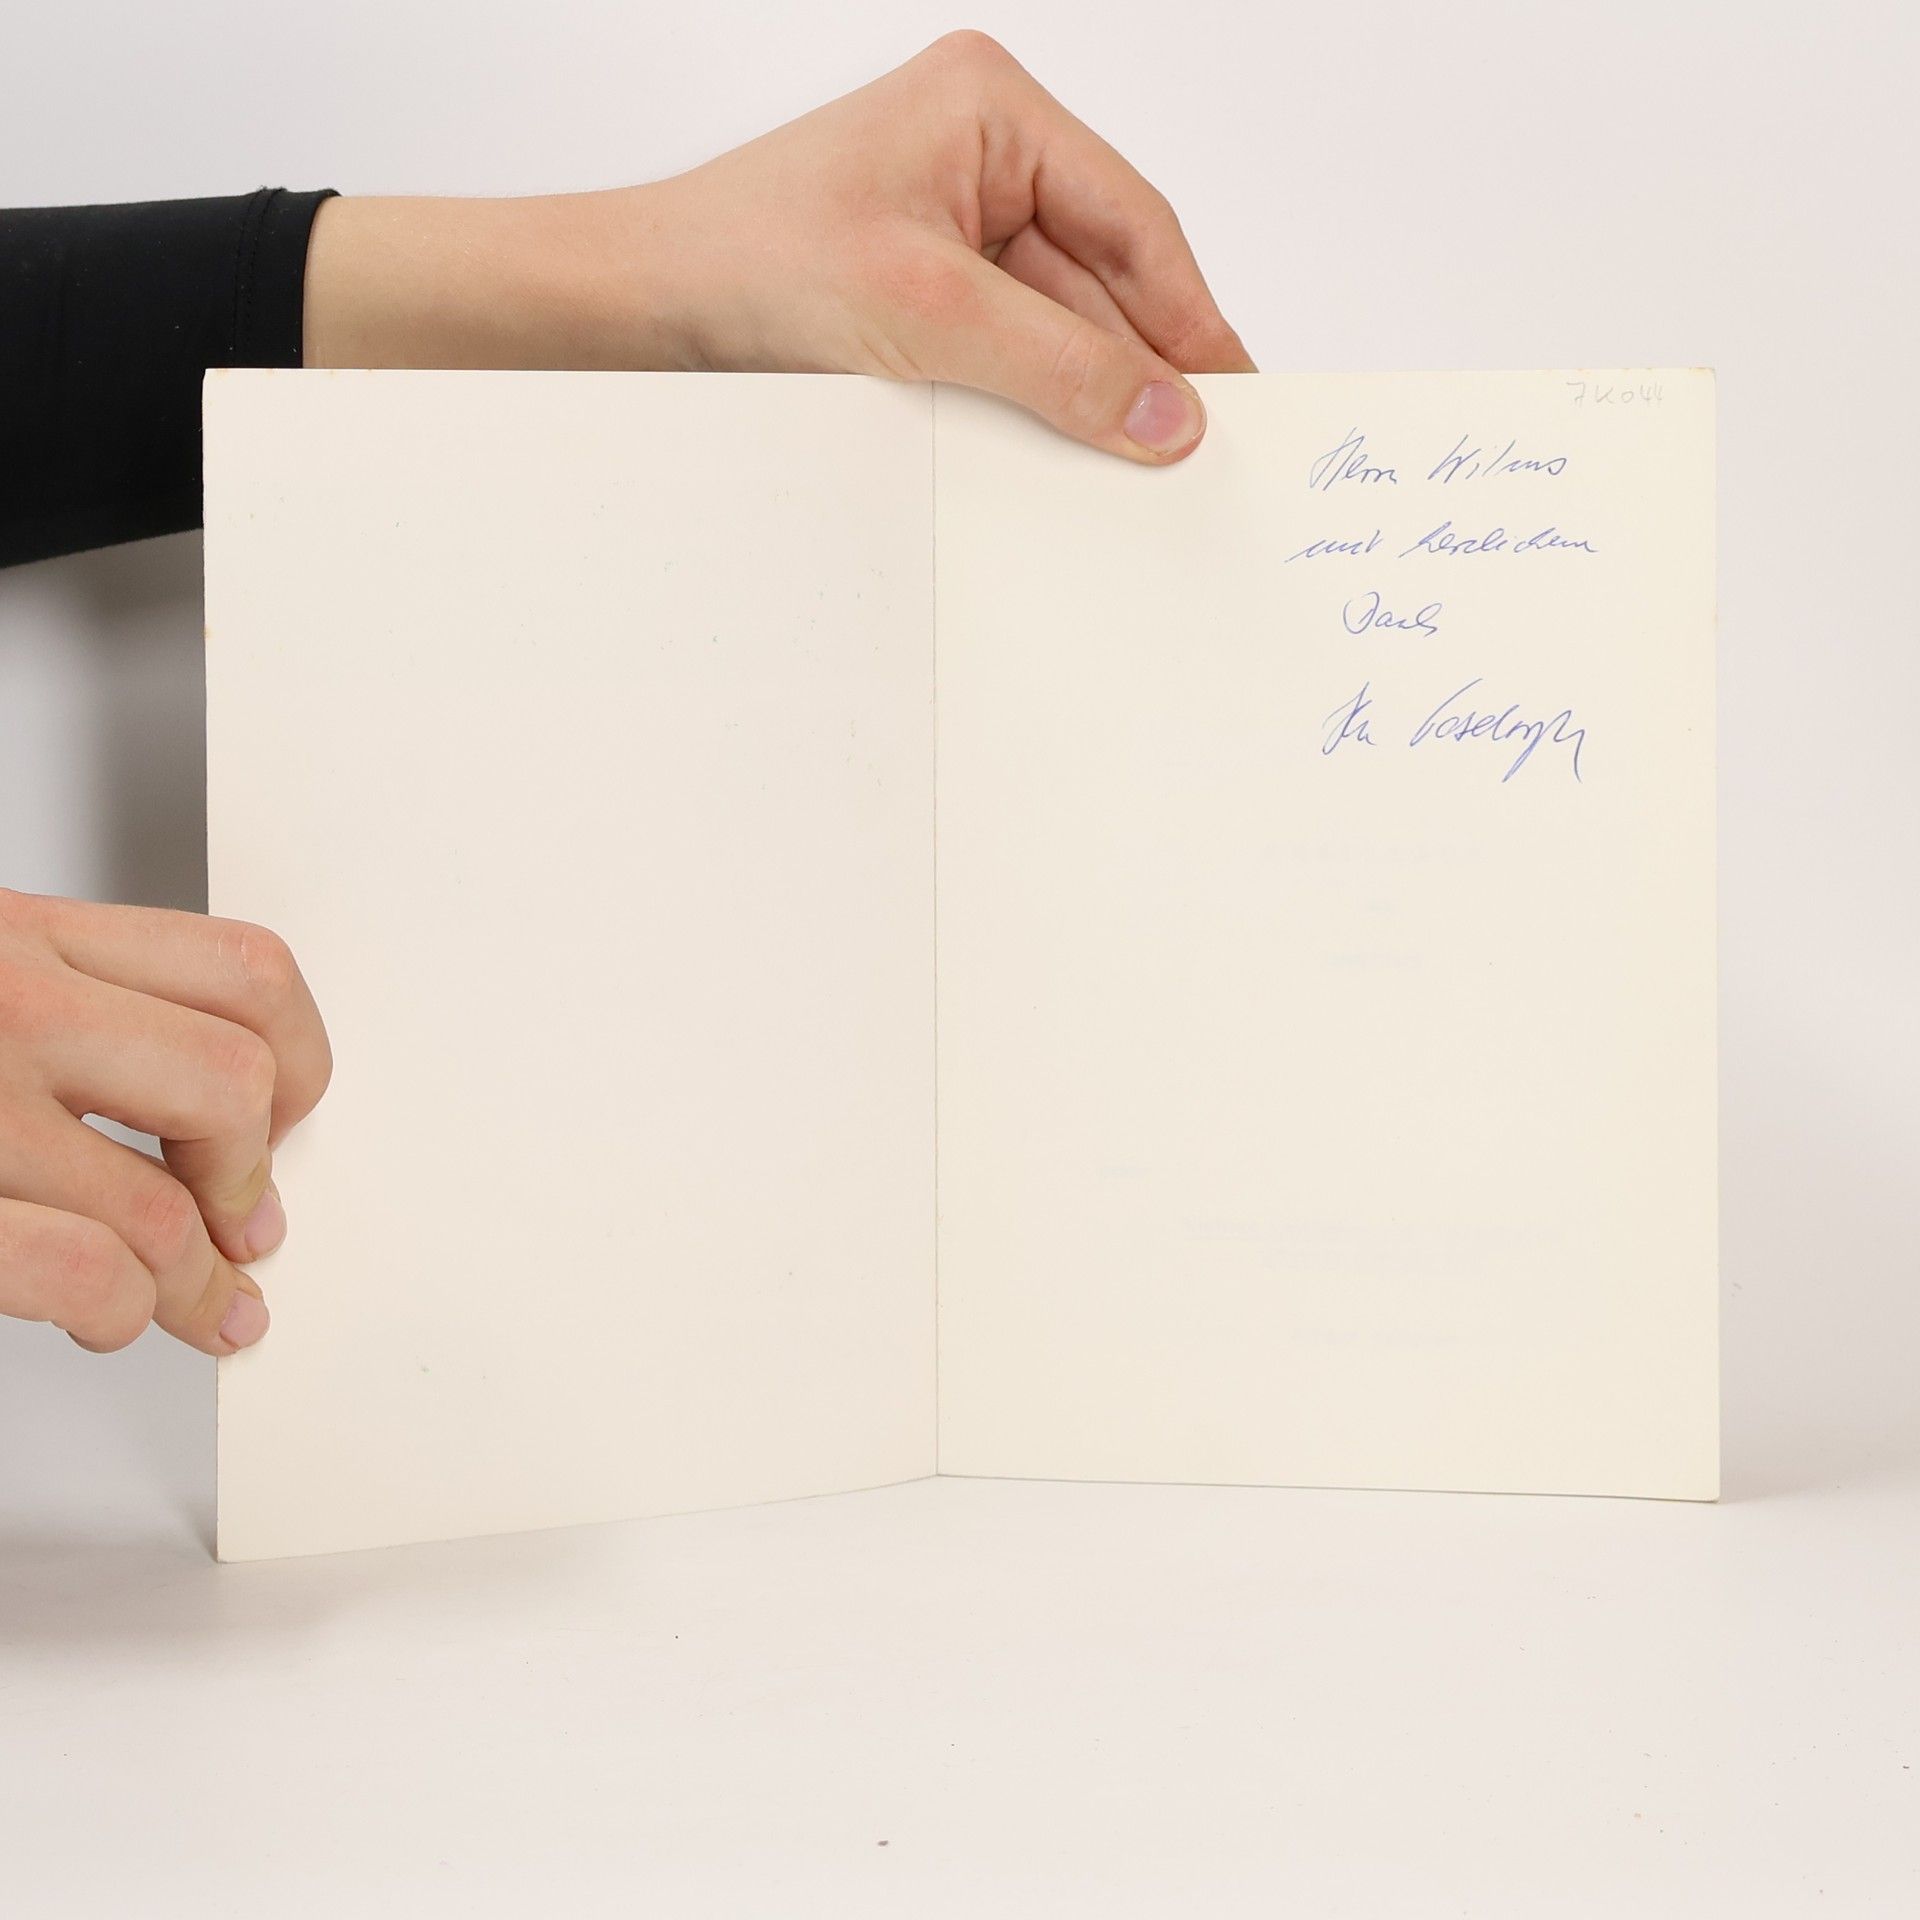 7K044
Herrn Wilms
mit herzlichem
Dank
Ihr